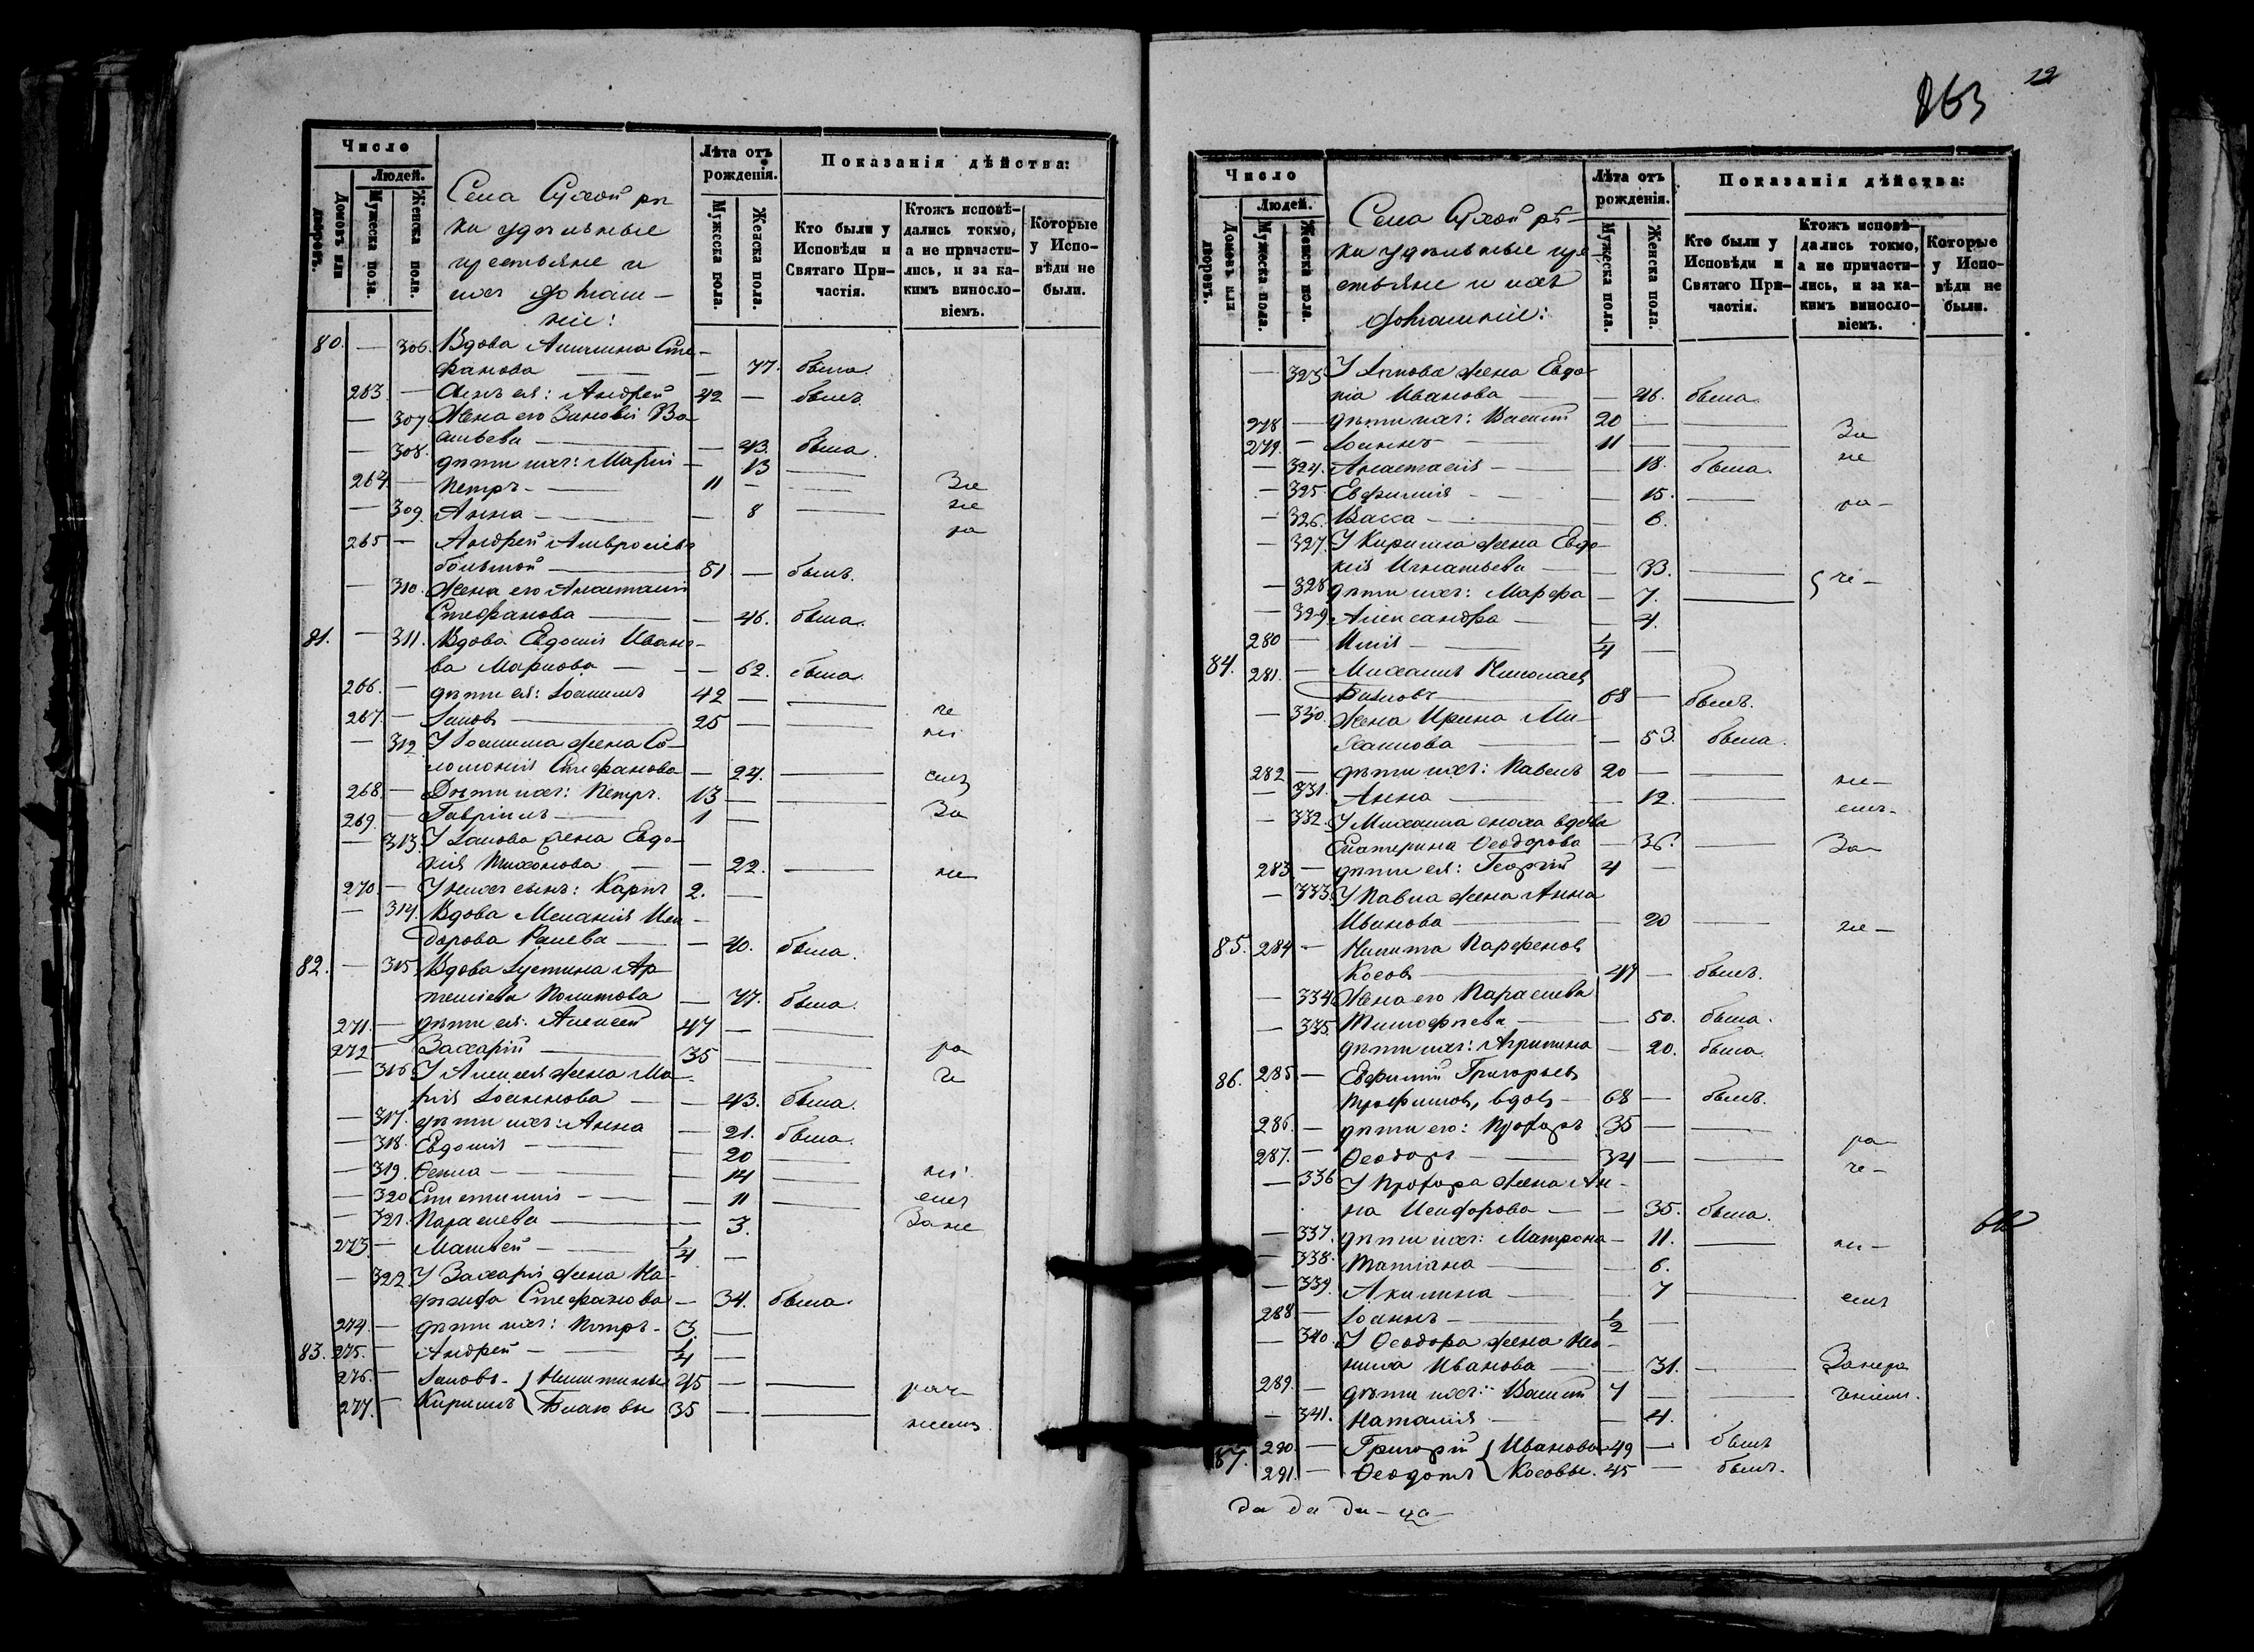 Число
Людей.
Домовъ или дворовъ.
Мужеска пола.
Женска пола.
Села Сухой рѣ-
ки удѣльные
крестьяне и
ихъ домаш-
ніе:
Лѣта отъ рожденія.
Мужеска пола.
Женска пола.
Показанія дѣйства:
Кто были у Исповѣди и Святаго Причастія.
Ктожъ исповѣдались токмо, а не причастились, и за какимъ винословіемъ.
Которые у Исповѣди не были.
80. — 306. Вдова Сте-
фанова — 77. была.
263. — Сынъ ея: Андрей 42 — былъ.
— 307 Жена его Зиновія Ва
сильева — 43. была.
— 308. дѣти ихъ: Марія — 13 —
264. — Петръ — 11 — — За
— 309. Анна — — 8 — не
265 — Андрей Амвросіевъ ра
большой — 51. — былъ.
— 310. Жена его Анастасія
Стефанова — — 46. была.
81. — 311. Вдова Евдокія Ивано-
ва Маркова — — 62. была.
266. — дѣти ея: Іоакимъ 42 — — че
267. — Іаковъ — 25 — — ні
— 312 У Іоакима жена Со-
ломонія Стефанова — 24. — емъ
268. — Дѣти ихъ: Петръ. 13 — —
269. — Гавріилъ — 1 — За
— 313. У Іакова жена Евдо-
кія Тихонова — — 22. — не
270 — У нихъ сынъ: Карпъ 2. —
— 314. Вдова Меланія Иси-
дорова — — 40. была.
82. — 315. Вдова Іустина Ар-
темьева — 77. была.
271. — дѣти ея: Алексей 47 — —
272 — Захарій — 35 — — ра
— 316 У Алексея жена Ма- че
рія Іоаннова — — 43. была.
— 317. дѣти ихъ: Анна — 21. была.
— 318. Евдокія — — 20 —
— 319. Ѳекла — — 14 — ні
— 320 — — 11 — емъ
— 321. Параскева — — 3. За не
273. — Матвей — 1/4 —
— 322 У Захарія жена На-
дежда Стефанова — 34. была.
274. — дѣти ихъ: Петръ — 3. —
83. 275. — Андрей — 1/4 —
276. — Іаковъ — { Никитины 45 — — рач-
277. — Кириллъ { 35 — — ніемъ.
263
12
Число
Людей.
Домовъ или дворовъ.
Мужеска пола.
Женска пола.
Села Сухой рѣ-
ки удѣльные кре-
стьяне и ихъ
домашніе:
Лѣта отъ рожденія.
Мужеска пола.
Женска пола.
Показанія дѣйства:
Кто были у Исповѣди и Святаго Причастія.
Ктожъ исповѣдались токмо, а не причастились, и за какимъ винословіемъ.
Которые у Исповѣди не были.
— 323 У Іакова жена Евдо-
кія Иванова — — 46. была.
278 — дѣти ихъ: Василій 20 — — За
279. — Іоаннъ — 11 — — не
— 324. Анастасія — — 18. была.
— 325. Евфимія — — 15. — ра-
— 326. Васса — — 6.
— 327. У Кирилла жена Евдо-
кія Игнатьева — — 33. — че-
— 328 дѣти ихъ: Марфа — 7. —
— 329 Александра — — 4.
280 — Илія — 1/4 —
84. 281. — Михаилъ Николаевъ
68 — былъ.
— 330. Жена Ирина Ми-
хаилова — — 53. была.
282 — дѣти ихъ: Павелъ 20 — — ні-
— 331. Анна — — 12. — емъ-
— 332. У Михаила сноха вдова
Екатерина Ѳеодорова — 36. — За-
283 — дѣти ея: Георгій 4 —
— 333. У Павла жена Анна
Иванова — — 20 — не-
85. 284 — Никита Парфеновъ
Косовъ — 49 — былъ.
— 334. Жена его Параскева
Тимофѣева — — 50. была.
— 335. дѣти ихъ: Агрипина — 20. была.
86. 285. — Евфимій Григорьевъ
Трофимовъ, вдовъ — 68 — былъ.
286. — дѣти его: Прохоръ 35 — — ра-
287. — Ѳеодоръ — 34 — — че-
— 336 У Прохора жена Ан-
на Исидорова — — 35. была.
— 337. дѣти ихъ: Матрона — 11. — ні-
— 338. Татіана — — 6.
— 339. Акилина — — 7 — емъ
288 — Іоаннъ — 1/2 —
— 340. У Ѳеодора жена Нео-
нила Иванова — — 31. — За нера
289. — дѣти ихъ: Василій 7 — — ченіемъ.
— 341. Наталія — — 4.
87. 290. — Григорій { Ивановы 49 — былъ
291. — Ѳеодотъ { Косовы. 45 — былъ.